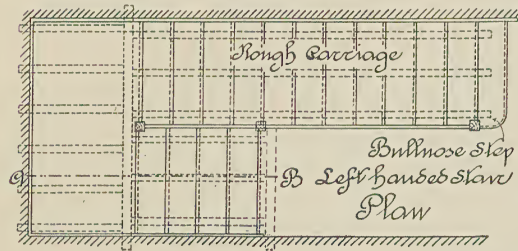 Rough Carriage
Bullnose Step
a
B Left handed Stair
Plan